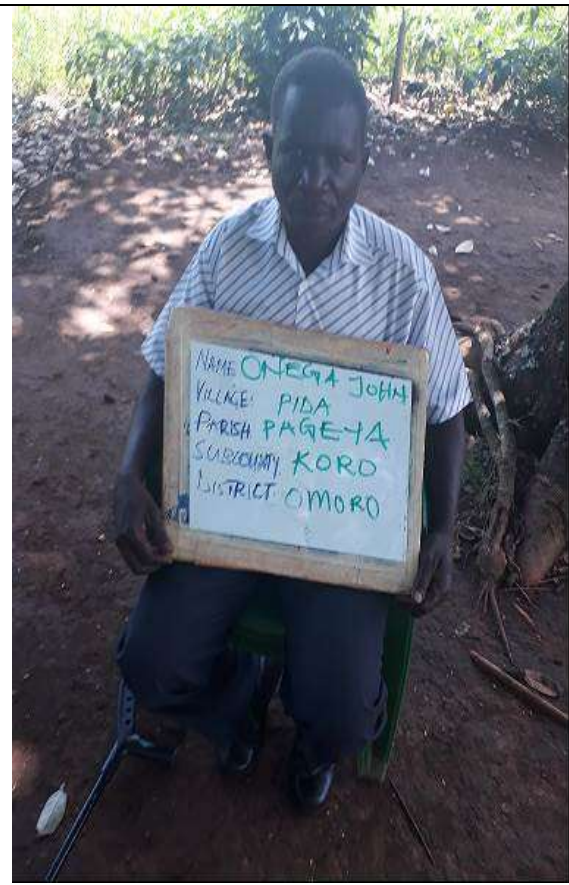 NAME ONEGA JOHN
VILLAGE: PIDA
PARISH PAGEYA
SUBCOUNTY KORO
DISTRICT OMORO